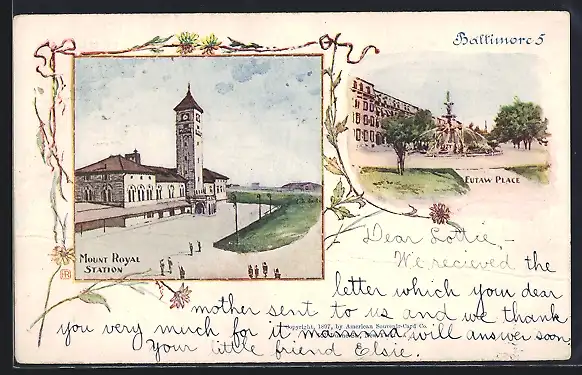 Baltimore 5
EUTAW PLACE
MOUNT ROYAL
STATION
Dear Lottie, -
We recieved the
letter which you dear
mother sent to us and we thank
you very much for it mama and will answer soon,
Your little friend Elsie.
Copyright, 1897, by American Souvenir-Card Co.